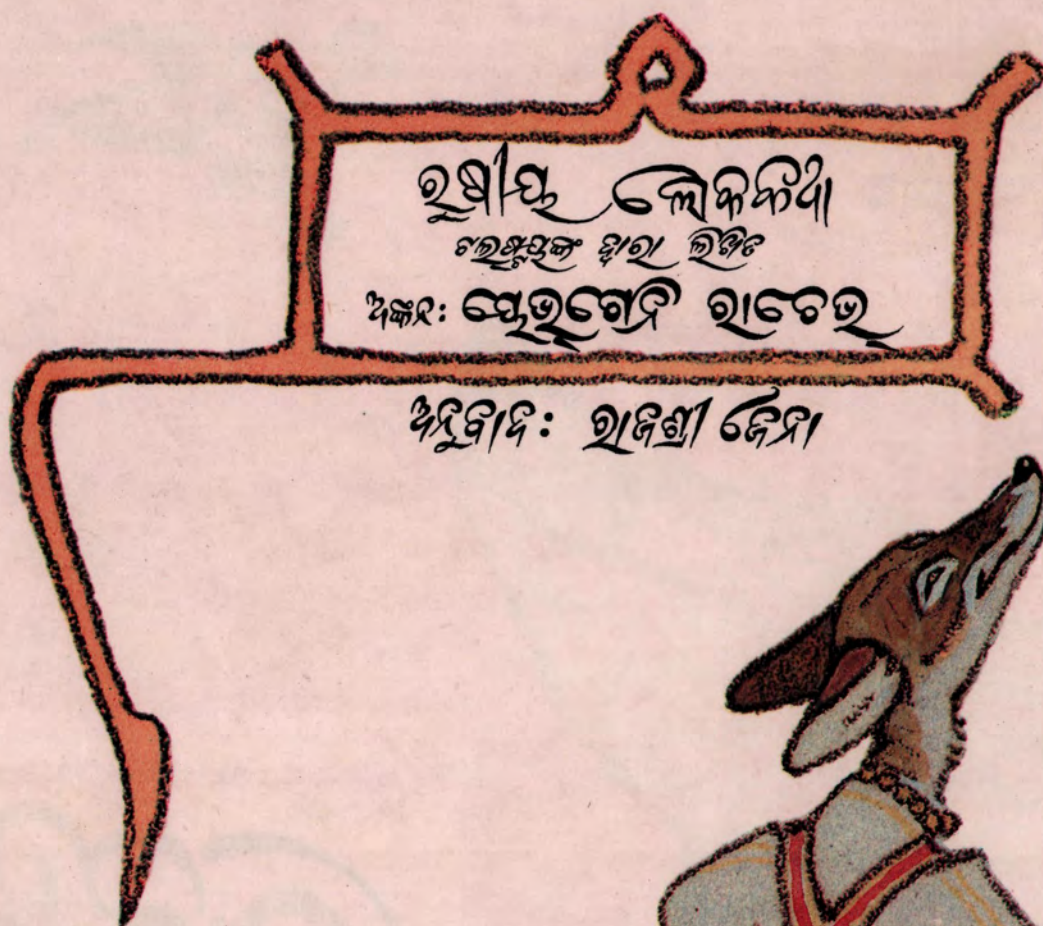 ରୁଷୀୟ ଲୋକକଥା
ଟଲଷ୍ଟୟଙ୍କ ଦ୍ୱାରା ଲିଖିତ
ଅଙ୍କନ: ୟେଭ୍‌ଗେନି ରାଚେଭ୍
ଅନୁବାଦ: ରାଜଶ୍ରୀ ଜେନା